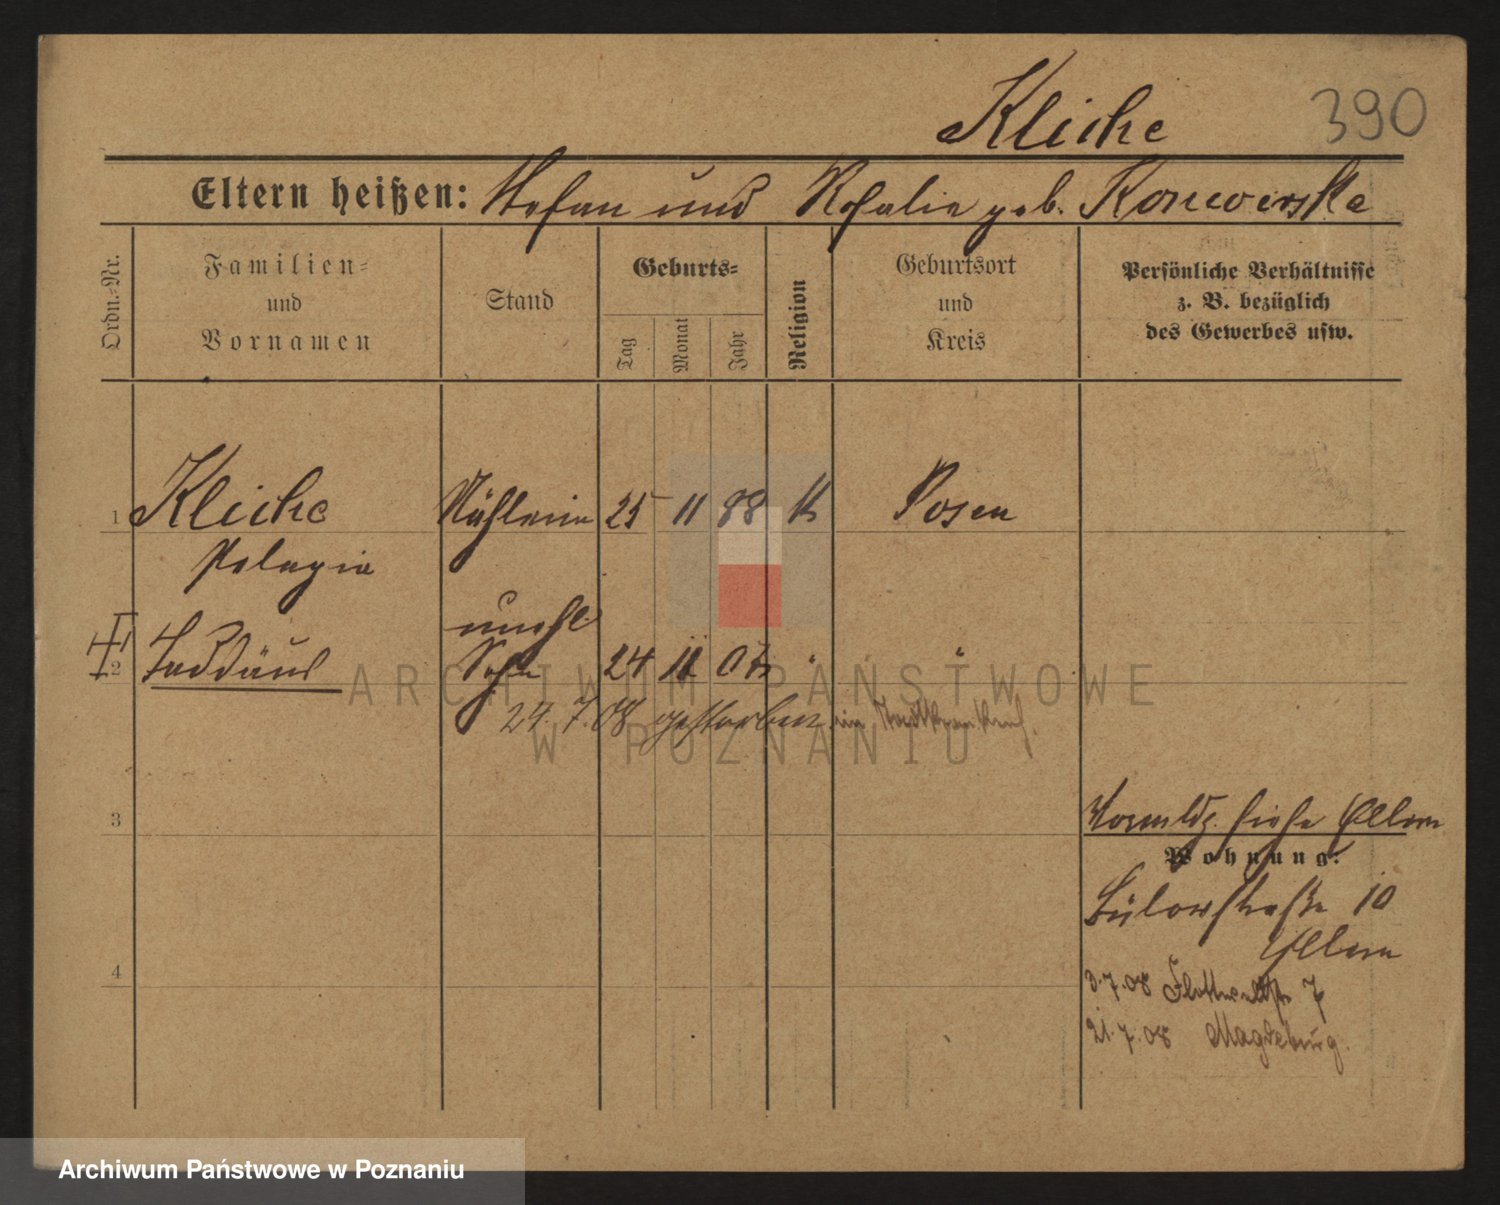 Kliche 390
Eltern heißen: Stefan und Rosalie geb. Konwerska
Ordn.-Nr.
Familien-
und
Vornamen
Stand
Geburts-
Tag
Monat
Jahr
Religion
Geburtsort
und
Kreis
Persönliche Verhältnisse
z. B. bezüglich
des Gewerbes usw.
1 Kliche Näherin 25 11 88 K Posen
Pelagia
unehl.
2 Taddäus Sohn 24 11 07 " "
24.7.08 gestorben im Stadtkrankenh.
3
siehe Eltern
Wohnung:
Bülowstraße 10
Eltern
4
3.7.08 Flottwellstr 7
21.7.08 Magdeburg.
ARCHIWUM PAŃSTWOWE
W POZNANIU
Archiwum Państwowe w Poznaniu